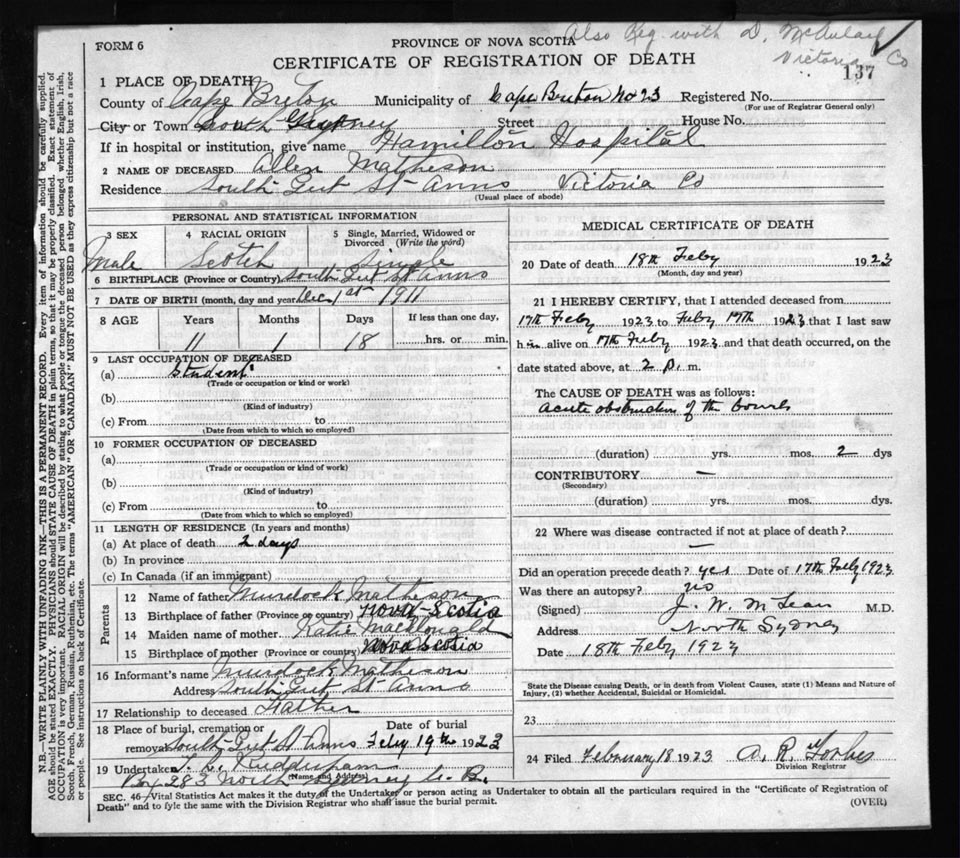 Also Reg. with D. McAulay
Victoria Co
FORM 6
PROVINCE OF NOVA SCOTIA
CERTIFICATE OF REGISTRATION OF DEATH
137
1 PLACE OF DEATH
County of Cape Breton Municipality of Cape Breton No 23 Registered No.
(For use of Registrar General only)
City or Town Street House No.
If in hospital or institution, give name Hamilton Hospital
2 NAME OF DECEASED Allen Matheson
Residence South Gut St Anns Victoria Co
(Usual place of abode)
PERSONAL AND STATISTICAL INFORMATION
3 SEX 4 RACIAL ORIGIN 5 Single, Married, Widowed or
Divorced (Write the word)
Male Scotch Single
6 BIRTHPLACE (Province or Country) South Gut St Anns
7 DATE OF BIRTH (month, day and year) Dec 1st 1911
8 AGE Years Months Days If less than one day,
11 1 18 hrs. or min.
9 LAST OCCUPATION OF DECEASED
(a) Student
(Trade or occupation or kind or work)
(b)
(Kind of industry)
(c) From to
(Date from which to which so employed)
10 FORMER OCCUPATION OF DECEASED
(a)
(Trade or occupation or kind of work)
(b)
(Kind of industry)
(c) From to
(Date from which to which so employed)
11 LENGTH OF RESIDENCE (In years and months)
(a) At place of death 2 days
(b) In province
(c) In Canada (if an immigrant)
Parents
12 Name of father Murdock Matheson
13 Birthplace of father (Province or country) Nova-Scotia
14 Maiden name of mother Katie MacDonald
15 Birthplace of mother (Province or country) Nova Scotia
16 Informant's name Murdock Matheson
Address South Gut St Anns
17 Relationship to deceased Father
18 Place of burial, cremation or Date of burial
removal South Gut St Anns Feby 19th 1923
19 Undertaker
(Name and Address)
Box 283 North Sydney C. B.
MEDICAL CERTIFICATE OF DEATH
20 Date of death 18th Feby 1923
(Month, day and year)
21 I HEREBY CERTIFY, that I attended deceased from
17th Feby 1923 to Feby 17th 1923 that I last saw
him alive on 17th Feby 1923 and that death occurred, on the
date stated above, at 2 p. m.
The CAUSE OF DEATH was as follows:
acute obstruction of the bowels
(duration) yrs. mos. 2 dys
CONTRIBUTORY —
(Secondary)
(duration) yrs. mos. dys.
22 Where was disease contracted if not at place of death?
—
Did an operation precede death? yes Date of 17th Feby 1923
Was there an autopsy? no
(Signed) J. W. McLean M.D.
Address North Sydney
Date 18th Feby 1923
State the Disease causing Death, or in death from Violent Causes, state (1) Means and Nature of
Injury, (2) whether Accidental, Suicidal or Homicidal.
23
24 Filed February 18 1923 A. R. Forbes
Division Registrar
SEC. 46—Vital Statistics Act makes it the duty of the Undertaker or person acting as Undertaker to obtain all the particulars required in the "Certificate of Registration of
Death" and to fyle the same with the Division Registrar who shall issue the burial permit.
(OVER)
N.B.—WRITE PLAINLY WITH UNFADING INK—THIS IS A PERMANENT RECORD. Every item of information should be carefully supplied.
AGE should be stated EXACTLY. PHYSICIANS should STATE CAUSE OF DEATH in plain terms, so that it may be properly classified. Exact statement of
OCCUPATION is very important. RACIAL ORIGIN will be described by stating to what people or tongue the deceased person belonged whether English, Irish,
Scotch, French, German, Russian, Ruthenian, etc. The terms "AMERICAN" OR "CANADIAN" MUST NOT BE USED as they express citizenship but not a race
or people. See instructions on back of Certificate.